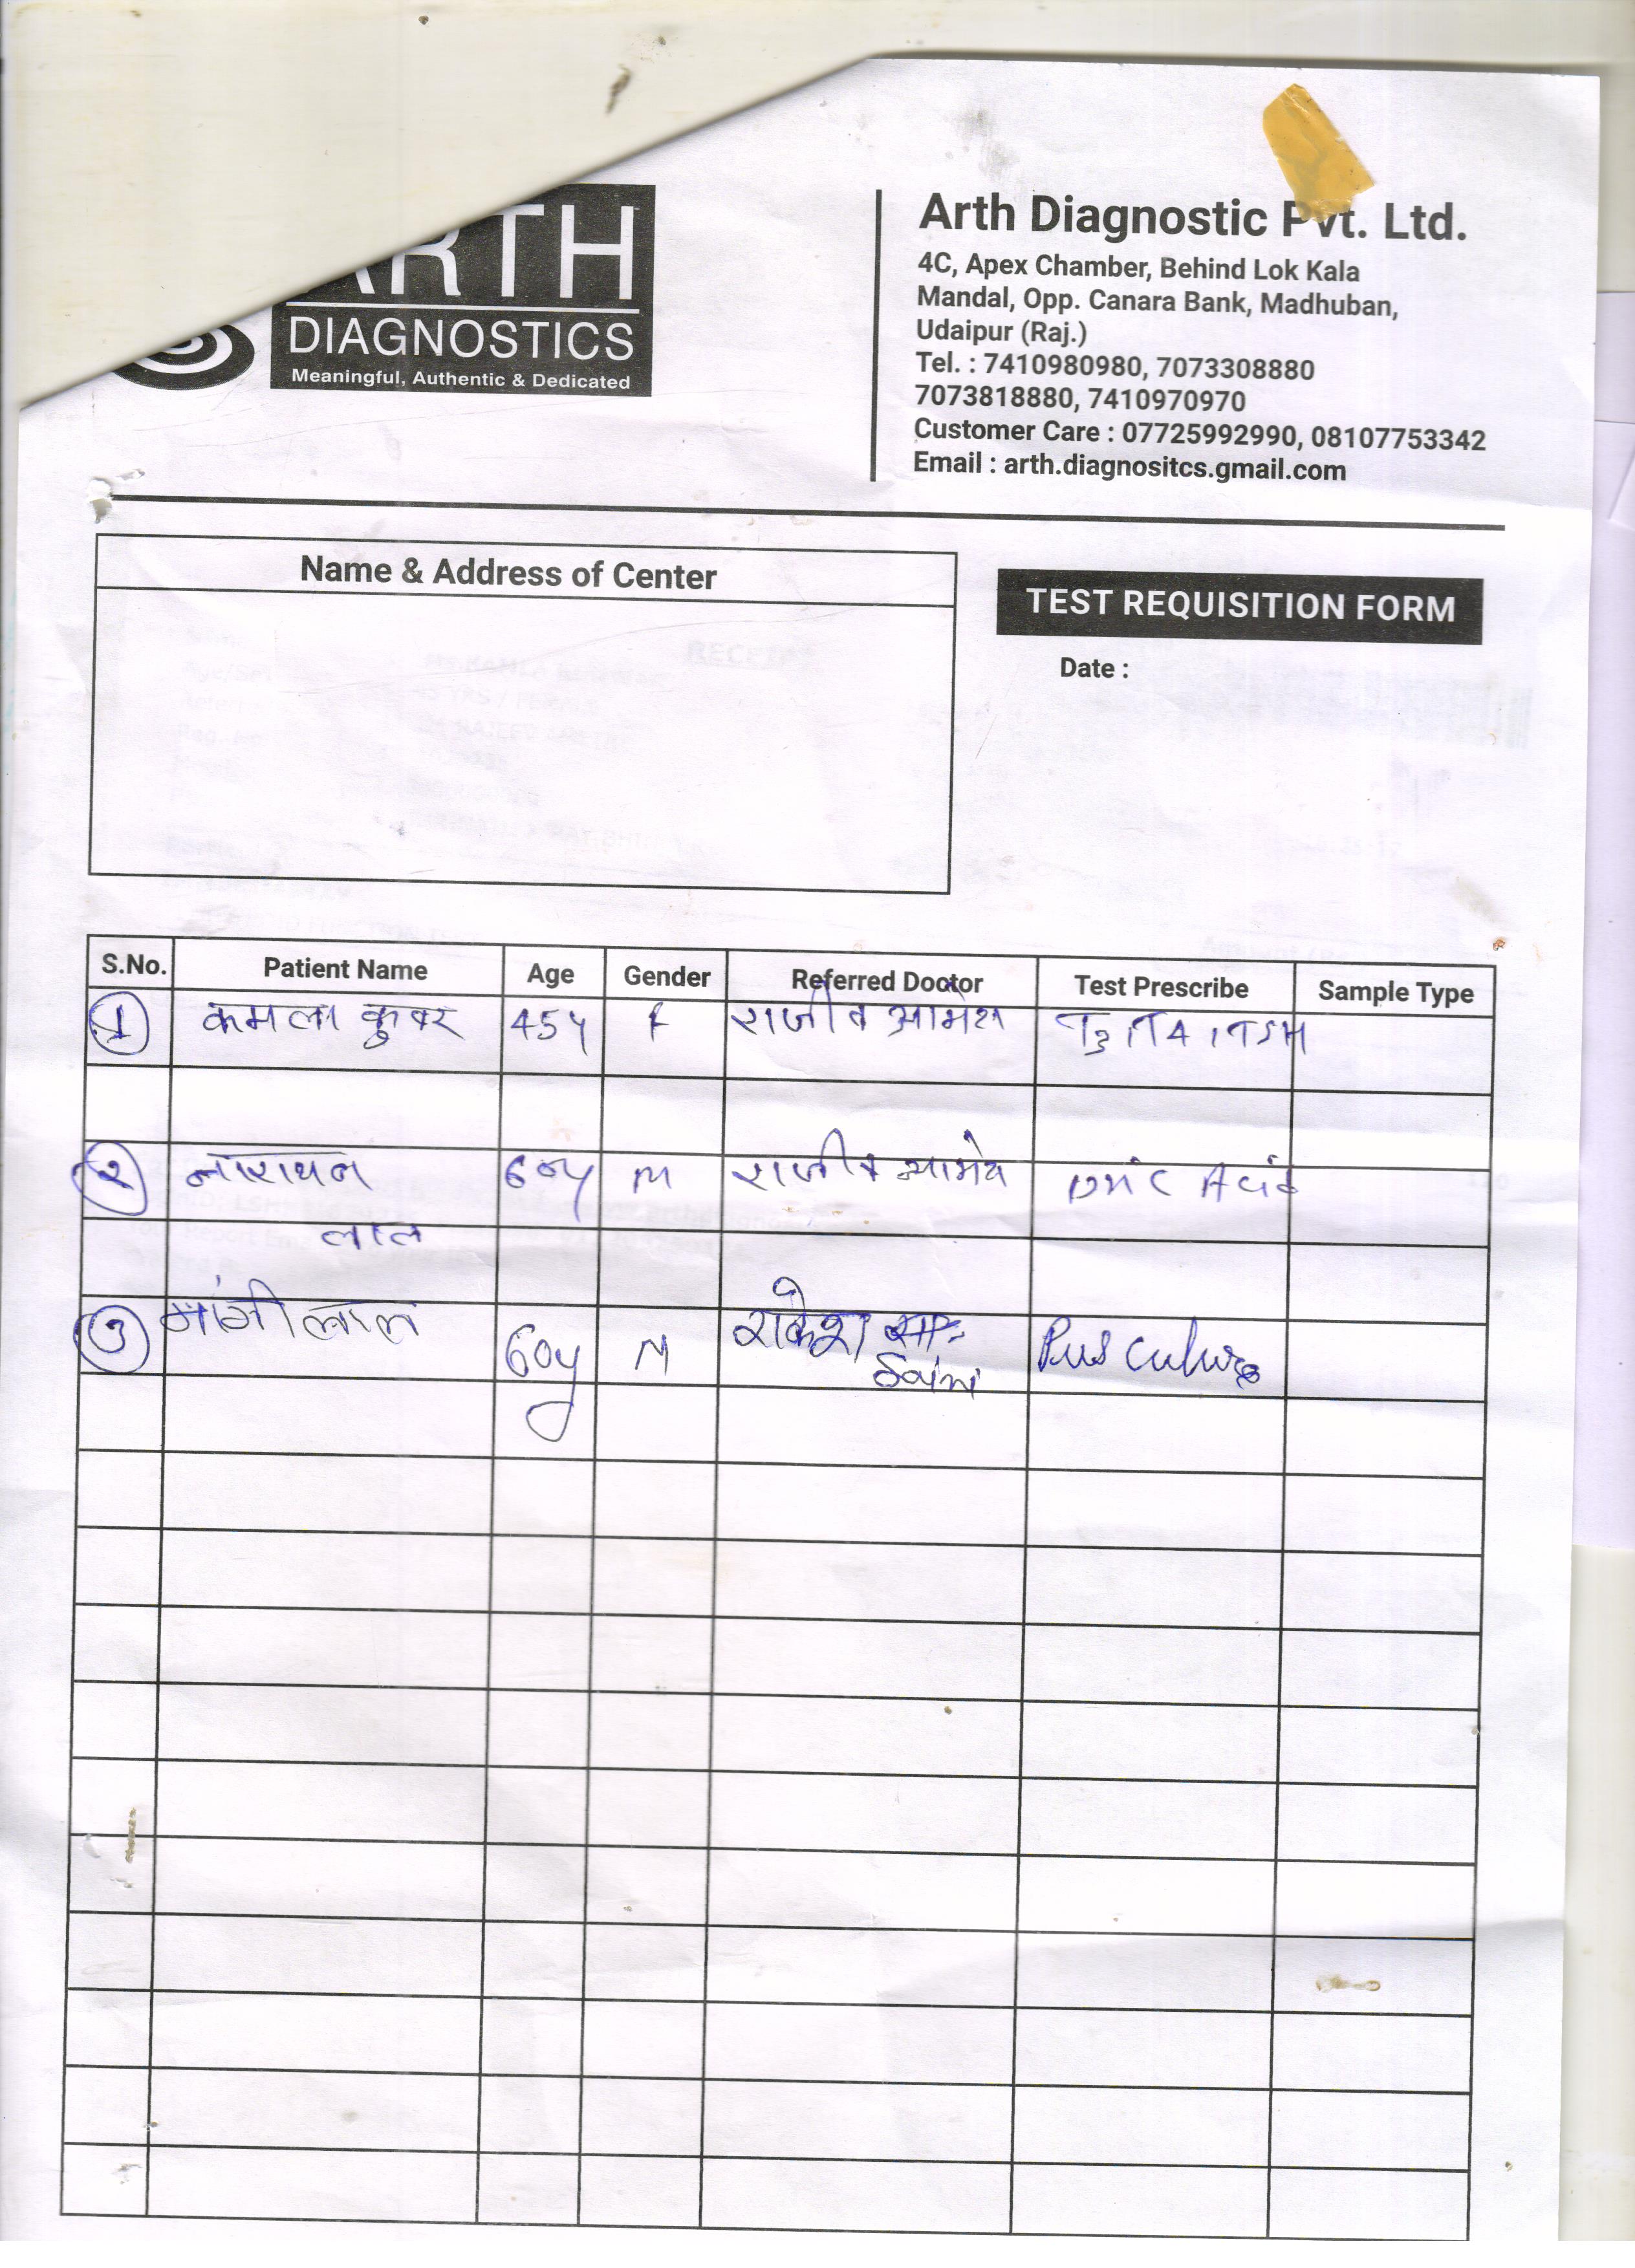 ARTH
DIAGNOSTICS
Meaningful, Authentic & Dedicated
Arth Diagnostic Pvt. Ltd.
4C, Apex Chamber, Behind Lok Kala
Mandal, Opp. Canara Bank, Madhuban,
Udaipur (Raj.)
Tel. : 7410980980, 7073308880
7073818880, 7410970970
Customer Care : 07725992990, 08107753342
Email : arth.diagnositcs.gmail.com
Name & Address of Center
TEST REQUISITION FORM
Date :
S.No. Patient Name Age Gender Referred Doctor Test Prescribe Sample Type
1 कमला कुवर 45y F राजीव आमेरा T3, T4, TSH
२ नारायन 60y M राजीव आमेरा Uric Acid
लाल
3 मांगीलाल 60y M राकेश Pus Culure
Saini